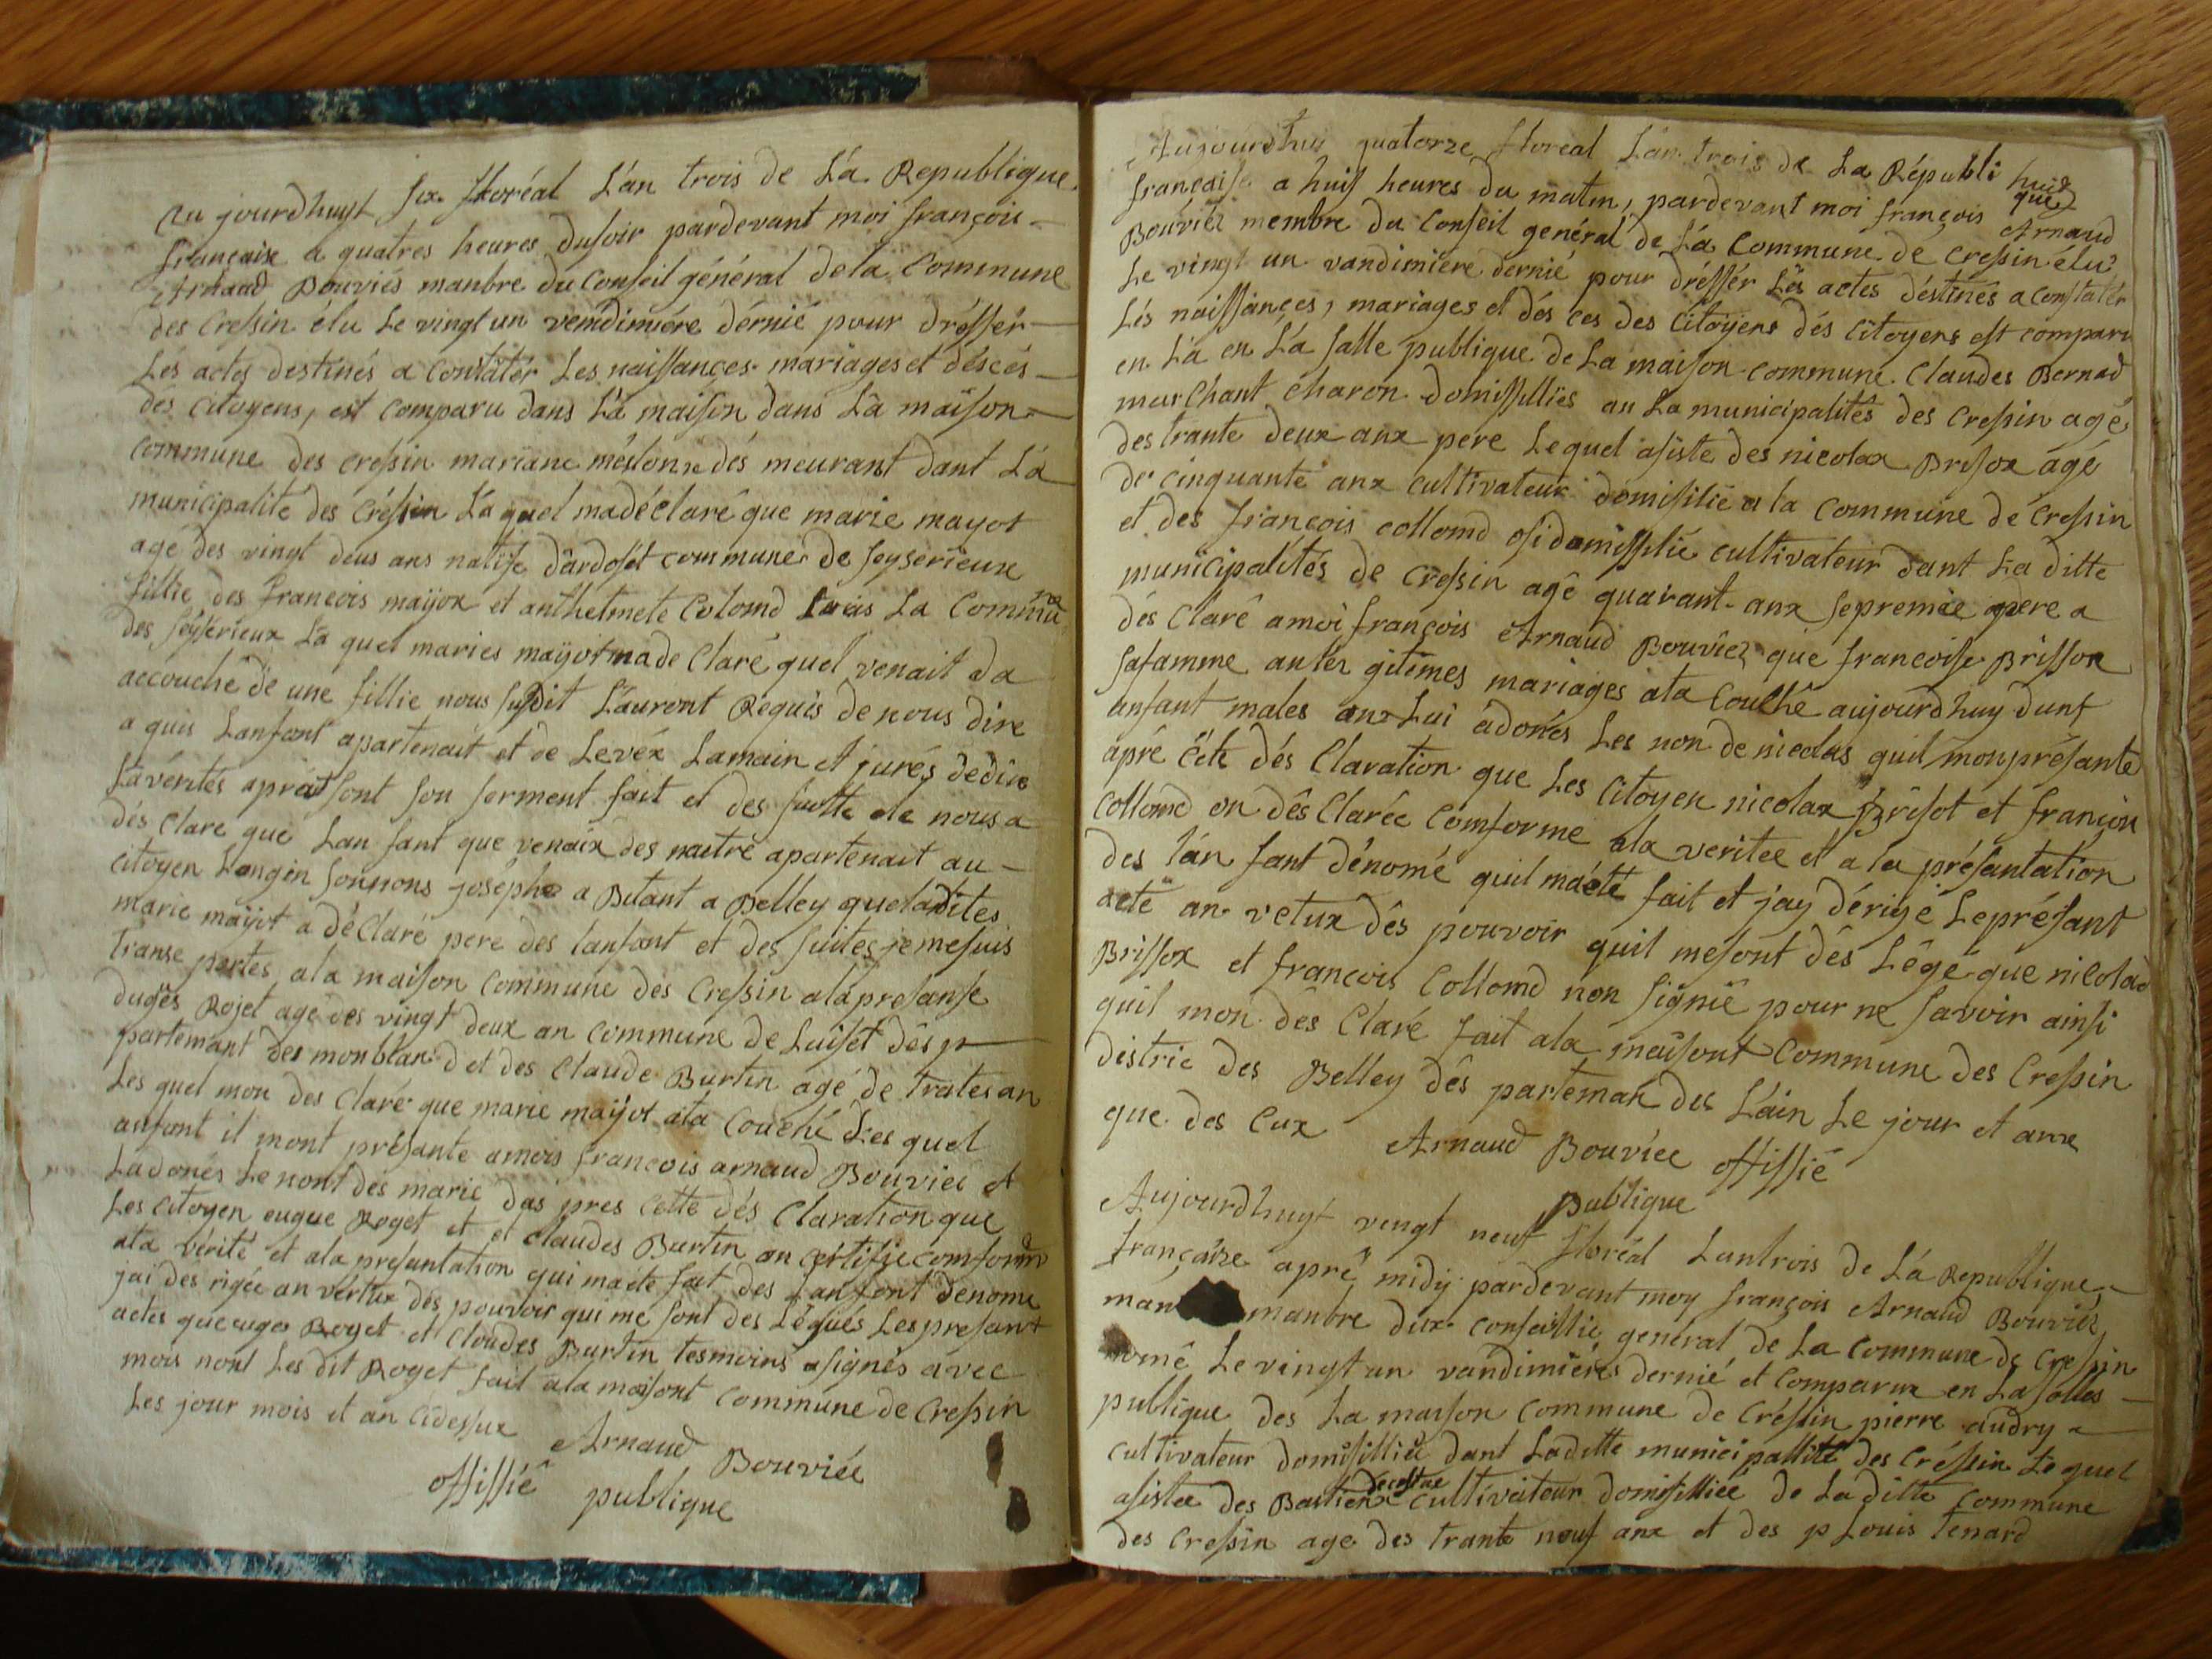 Au jourdhuyt six floréal L'an trois de La Republique
française a quatres heures dusoir pardevant moi françois
Arnaud Bouviés manbre du Conseil général dela Commune
des Cressin élu Le vingt un vemdimiére dérnié pour drésser
Les actes destinés a constatér Les naissançes mariages et déscés
dés citoyens, est comparu dans L'a maison dans L'a maison
commune des cressin mariane méstonne dés meurant dant L'a
municipalité des Créssin L'a quel madéclaré que marie mayot
age des vingt deus ans natise dârdosét commune de seyserieux
fillie des francois maÿox et anthelmete Colomd La Commune
des seÿserieux L'a quel maries maÿot made Claré quel venait da
accouché de une fillie nous susdit L'auront Requis de nous dire
a quis Lanfant apartenait et de Levéx Lamain et jurés dedire
Lavérités sont son serment fait et des suitte ele nousa
dés Clare que Lan fant que venaix des naitre apartenait au
citoyen Longin sounons joséphe a Bitant a Belley queladites
marie maÿot a déClaré pere des lanfant et des suites jemesuis
transe portés ala maison Commune dés Cressin alapresanse
dugés Rojet agé des vingt deux an Commune de Luisét dés p
partemant des monblan d et des Claude Burtin agé de trates an
Les quel mon des Claré que marie maÿot ata Couché Les quel
anfant il mont présante amois francois arnaud Bouvier et
Ladonés Le nont des marie das pres Cette dés Claration que
Les citoyen eugue Roget et et claudes Burtin an certifie comforme
ala vérité et ala presantation qui maete fait des Lanfont denome
jai dés rigée an vértux dés pouvoir qui me sont des Légués Lespresant
actes que euges Roget et Cloudes Burtin tesmoins asignés avec
mois nont Les dit Roget fait ala maisont commune de Cressin
Les jour mois et an Cidessux
Arnaud Bouviée
offissié publique
Aujourdhuy quatorze floréal L'an trois de La Républi que
française a huis heures du matin, pardevant moi françois Arnaud
Bouviér membre du Conseil general de L'a Commune de cressin élu
Le vingt un vandimiere dernié pour drésser Lés actes déstinés a Constatér
Lés naissançes, mariages et dés ces des Citoÿens dés Citoyens est comparu
en L'a en L'a salle publique de La maison commune Claudes Bernad
marchant charon domissilliés an La municipalités des Cressin agé
des trante deux anx pere Le quel asiste des nicolax Brisox agé
de cinquante anx cultivateur domisilié a la Commune de Cressin
et des francois collomd osi domissilié cultivateur dant La ditte
municipalétés de Cressin agé quarant anx sepremie apere a
dés Claré amoi françois Arnaud Bouviez que francoise Brisson
safamme anlés gitimes mariages ata Couché aujourdhuy dunt
anfant males anx Lui adonés Les non de nicolas quil monprésante
apré Cete dés Claration que Les Citoyen nicolax Brisot et françoix
Collomd on dés Clarée Comforme ala veritee et a la présantation
des lán fant dénomé quil maété fait et jay dérigé Leprésant
acte an vetux dés pouvoir quil mesont dés Légé que nicolad
Brissox et francois Collomd non signié pour ne savoir ainsi
quil mon dés Claré fait ala maisont Commune des Cressin
distric des Belley dés partemak des L'ain Le jour et anx
que des Cux
Arnaud Bouviée offissié
publique
Aujourdhuyt vengt neuf floréal Lantrois de L'a Republique
françaize apré midy pardevant moy françois Arnaud Bouviér
man manbre dux conseillie general de La Commune de Cressin
nomé Le vingt un vandimiéres dernié et Comparux en La salles
publique des La maison Commune de Créssin pierre audry
cultivateur domisilliéé dant Ladite municipallité des Créssin Le quel
asistee des Bastien decostae cultivateur domisilliée de La ditte Commune
des Cressin age des trante neuf anx et des p Louis tenard